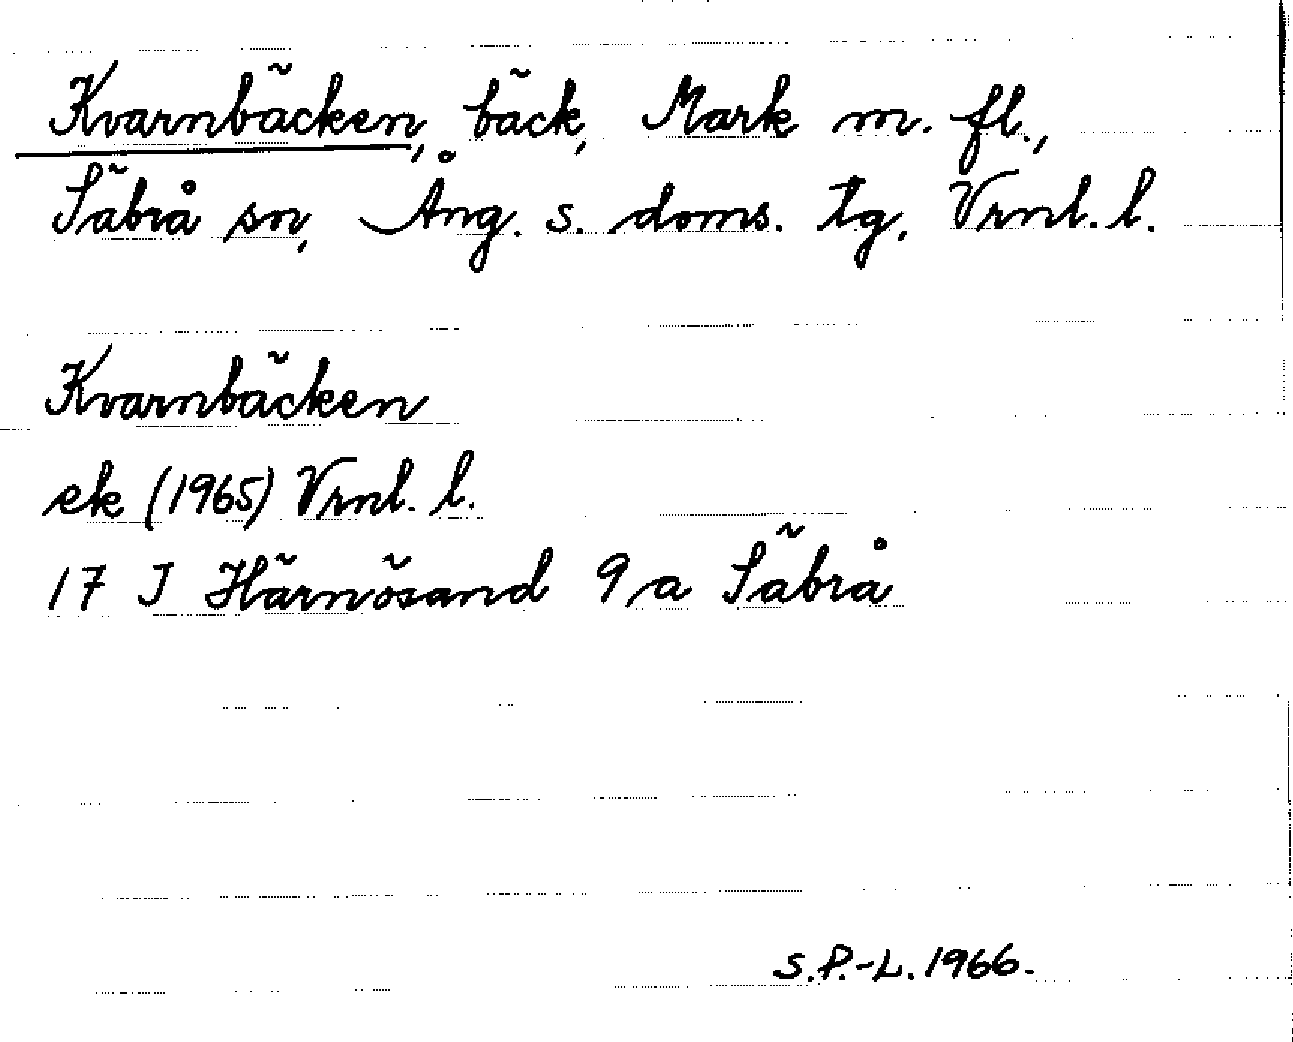 Kvarnbäcken, bäck, Mark m. fl.,
Säbrå sn, Ång. s. doms. tg, Vrnl. l.
Kvarnbäcken
ek (1965) Vrnl. l.
17 J Härnösand 9 a Säbrå
S.P.-L. 1966.